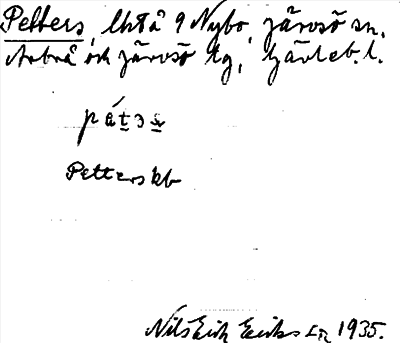 Petters, lht å 9 Nybo, Järvsö sn.
Arbrå och Järvsö tg, Gävleb. l.
pèt̲ɜs̲
Petters kb
Nils Erik Eriksson 1935.